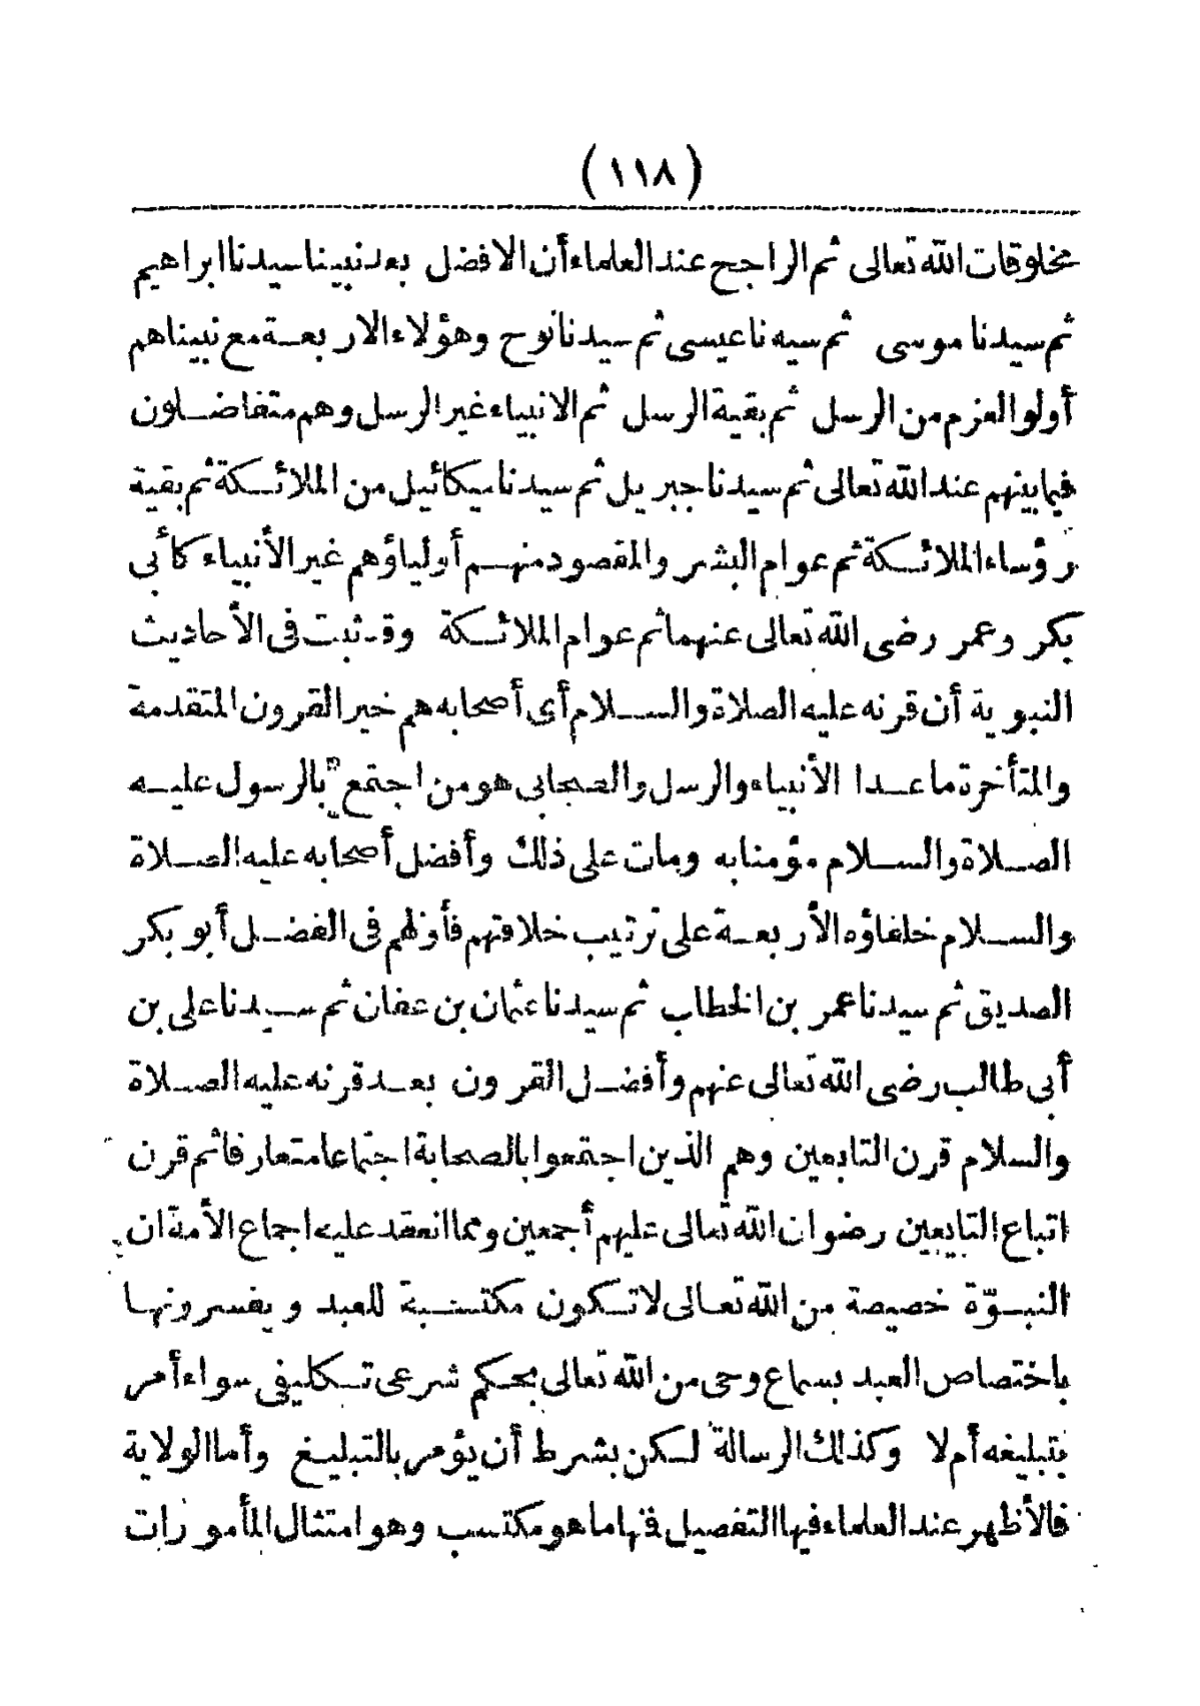 (١١٨)
مخلوقات الله تعالى ثم الراجح عند العلماء أن الافضل بعد نبينا سيدنا ابراهيم
ثم سيدنا موسى ثم سيدنا عيسى ثم سيدنا نوح وهؤلاء الاربعة مع نبينا هم
أولو العزم من الرسل ثم بقية الرسل ثم الانبياء غير الرسل وهم متفاضلون
فيما بينهم عند الله تعالى ثم سيدنا جبريل ثم سيدنا ميكائيل من الملائكة ثم بقية
رؤساء الملائكة ثم عوام البشر والمقصود منهم أولياؤهم غير الأنبياء كأبى
بكر وعمر رضى الله تعالى عنهما ثم عوام الملائكة وقد ثبت فى الأحاديث
النبوية أن قرنه عليه الصلاة والسلام أى أصحابه هم خير القرون المتقدمة
والمتأخرة ما عدا الأنبياء والرسل والصحابى هو من اجتمع بالرسول عليه
الصلاة والسلام مؤمنا به ومات على ذلك وأفضل أصحابه عليه الصلاة
والسلام خلفاؤه الأربعة على ترتيب خلافتهم فأولهم فى الفضل أبو بكر
الصديق ثم سيدنا عمر بن الخطاب ثم سيدنا عثمان بن عفان ثم سيدنا على بن
أبى طالب رضى الله تعالى عنهم وأفضل القرون بعد قرنه عليه الصلاة
والسلام قرن التابعين وهم الذين اجتمعوا بالصحابة اجتماعا متعارفا ثم قرن
اتباع التابعين رضوان الله تعالى عليهم أجمعين ومما انعقد عليه اجماع الأمة ان
النبوّة خصيصة من الله تعالى لا تكون مكتسبة للعبد ويفسرونها
باختصاص العبد بسماع وحى من الله تعالى بحكم شرعى تكليفى سواء أمر
بتبليغه أم لا وكذلك الرسالة لكن بشرط أن يؤمر بالتبليغ وأما الولاية
فالأظهر عند العلماء فيها التفصيل فمنها ما هو مكتسب وهو امتثال المأمورات